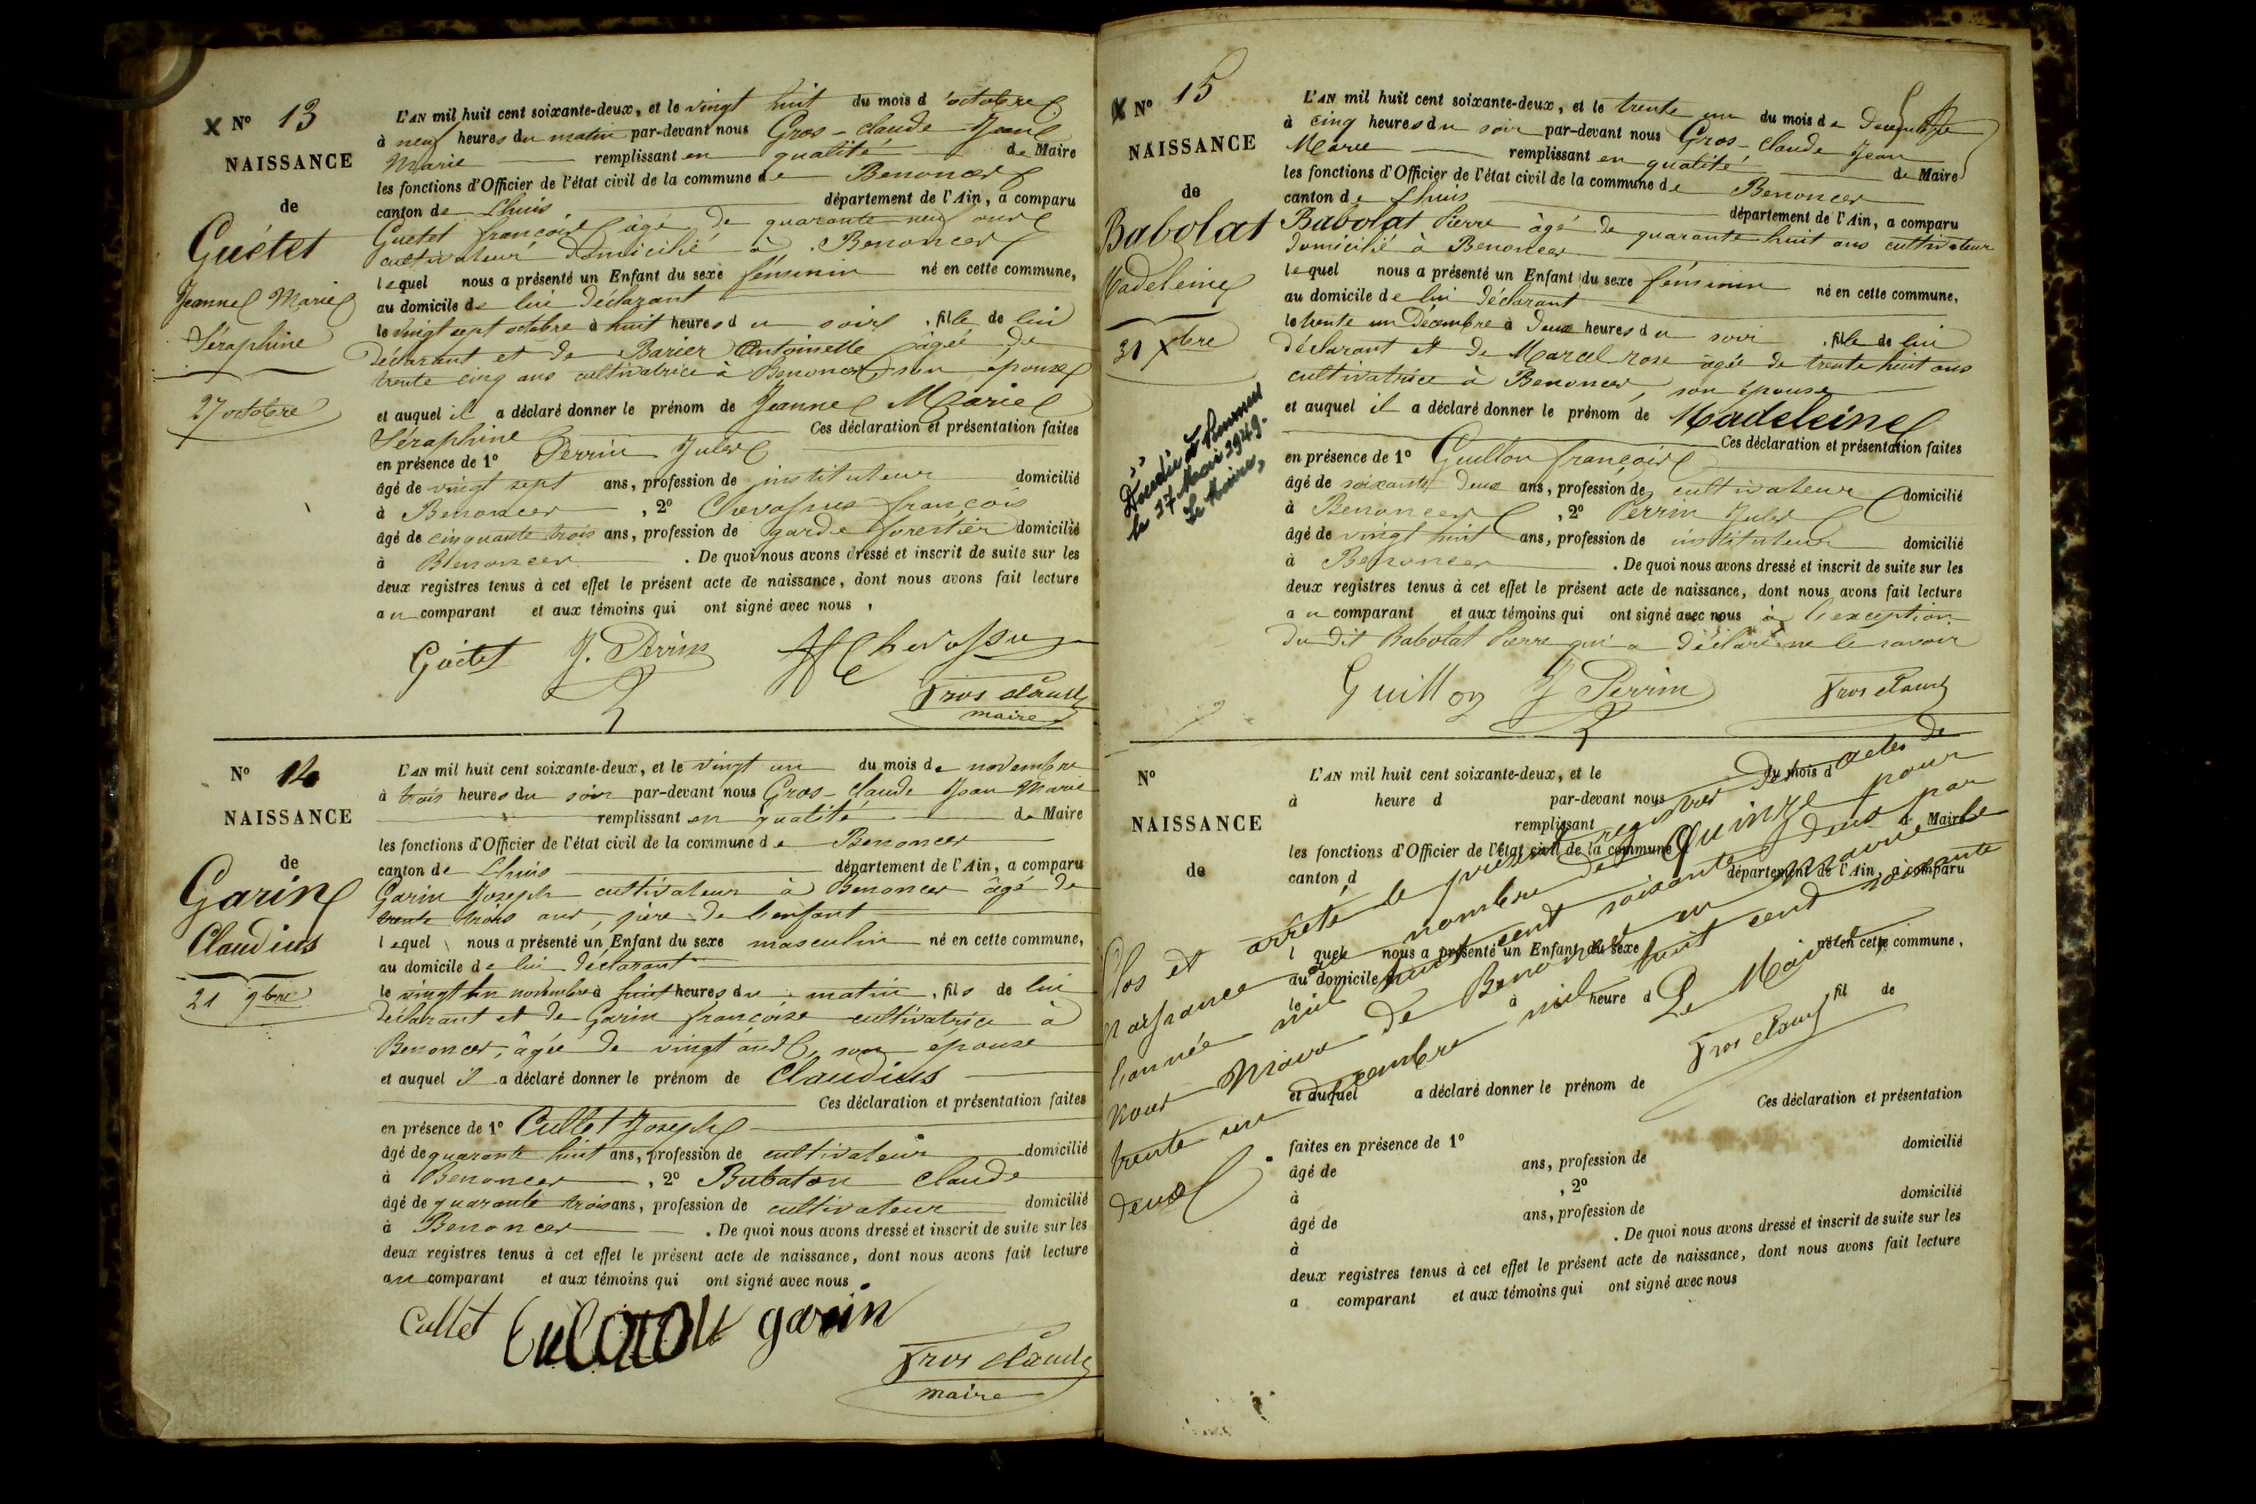 N° 13
NAISSANCE
de
Guétet
Jeanne Marie
Séraphine
27 octobre
L'AN mil huit cent soixante-deux, et le vingt huit du mois d'octobre
à neuf heures du matin par-devant nous Gros-claude Jean
Marie remplissant en qualité de Maire
les fonctions d'Officier de l'état civil de la commune de Benonces
canton de Lhuis département de l'Ain, a comparu
Guétet françois âgé de quarante neuf ans
cultivateur domicilié à Benonces
lequel nous a présenté un Enfant du sexe féminin né en cette commune,
au domicile de lui déclarant
le vingt sept octobre à huit heures du soir, fille de lui
déclarant et de Barier Antoinette âgée de
trente cinq ans cultivatrice à Benonces, son épouse
et auquel il a déclaré donner le prénom de Jeanne Marie
Séraphine Ces déclaration et présentation faites
en présence de 1° Perrin Jules
âgé de vingt sept ans, profession de instituteur domicilié
à Benonces, 2° Chevassus françois
âgé de cinquante trois ans, profession de garde forestier domicilié
à Benonces. De quoi nous avons dressé et inscrit de suite sur les
deux registres tenus à cet effet le présent acte de naissance, dont nous avons fait lecture
au comparant et aux témoins qui ont signé avec nous,
Guétet J. Perrin Chevassus
Gros claude
maire
N° 14
NAISSANCE
de
Garin
Claudius
21 9bre
L'AN mil huit cent soixante-deux, et le vingt un du mois de novembre
à trois heures du soir par-devant nous Gros-claude Jean Marie
remplissant en qualité de Maire
les fonctions d'Officier de l'état civil de la commune de Benonces
canton de Lhuis département de l'Ain, a comparu
Garin Joseph cultivateur à Benonces âgé de
trente trois ans, père de l'enfant
lequel nous a présenté un Enfant du sexe masculin né en cette commune,
au domicile de lui déclarant
le vingt un novembre à huit heures du matin, fils de lui
déclarant et de Garin françoise cultivatrice à
Benonces, âgée de vingt ans, son epouse
et auquel il a déclaré donner le prénom de Claudius
Ces déclaration et présentation faites
en présence de 1° Cullet Joseph
âgé de quarante huit ans, profession de cultivateur domicilié
à Benonces, 2° Bubaton Claude
âgé de quarante trois ans, profession de cultivateur domicilié
à Benonces. De quoi nous avons dressé et inscrit de suite sur les
deux registres tenus à cet effet le présent acte de naissance, dont nous avons fait lecture
au comparant et aux témoins qui ont signé avec nous.
Cullet garin
Gros claude
maire
N° 15
NAISSANCE
de
Babolat
Madeleine
31 Xbre
Décédée à
le 17 Mai 1949.
Le Maire,
L'AN mil huit cent soixante-deux, et le trente un du mois de Decembre
à cinq heures du soir par-devant nous Gros-claude Jean
Marie remplissant en qualité de Maire
les fonctions d'Officier de l'état civil de la commune de Benonces
canton de Lhuis département de l'Ain, a comparu
Babolat Pierre âgé de quarante huit ans cultivateur
domicilié à Benonces
lequel nous a présenté un Enfant du sexe féminin né en cette commune,
au domicile de lui déclarant
le trente un Décembre à deux heures du soir, fille de lui
déclarant et de Marcel rose âgée de trente huit ans
cultivatrice à Benonces, son épouse
et auquel il a déclaré donner le prénom de Madeleine
Ces déclaration et présentation faites
en présence de 1° Guillon françois
âgé de soixante deux ans, profession de cultivateur domicilié
à Benonces, 2° Perrin Jules
âgé de vingt huit ans, profession de instituteur domicilié
à Benonces. De quoi nous avons dressé et inscrit de suite sur les
deux registres tenus à cet effet le présent acte de naissance, dont nous avons fait lecture
au comparant et aux témoins qui ont signé avec nous à l'exception
du dit Babolat Pierre qui a déclaré ne le savoir
Guillon J Perrin Gros claude
N°
NAISSANCE
de
L'AN mil huit cent soixante-deux, et le du mois d
à heure d par-devant nous
remplissant d Maire
les fonctions d'Officier de l'état civil de la commune d
canton d département de l'Ain, a comparu
l quel nous a présenté un Enfant du sexe né en cette commune,
au domicile d
le à heure d fil de
et auquel a déclaré donner le prénom de
Ces déclaration et présentation
faites en présence de 1°
âgé de ans, profession de domicilié
à , 2°
âgé de ans, profession de domicilié
à . De quoi nous avons dressé et inscrit de suite sur les
deux registres tenus à cet effet le présent acte de naissance, dont nous avons fait lecture
a comparant et aux témoins qui ont signé avec nous
Clos et arrêté le présent registre des actes de
naissance au nombre de Quinze pour
l'année mil huit cent soixante deux par
nous Maire de Benonces en mairie le
trente un décembre mil huit cent soixante
deux.
Le Maire
Gros claude